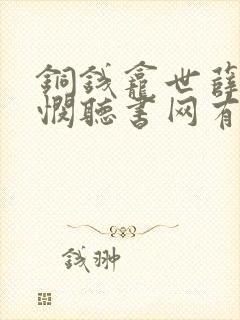 銅錢龕世薛
憫聽書网有
錢翀